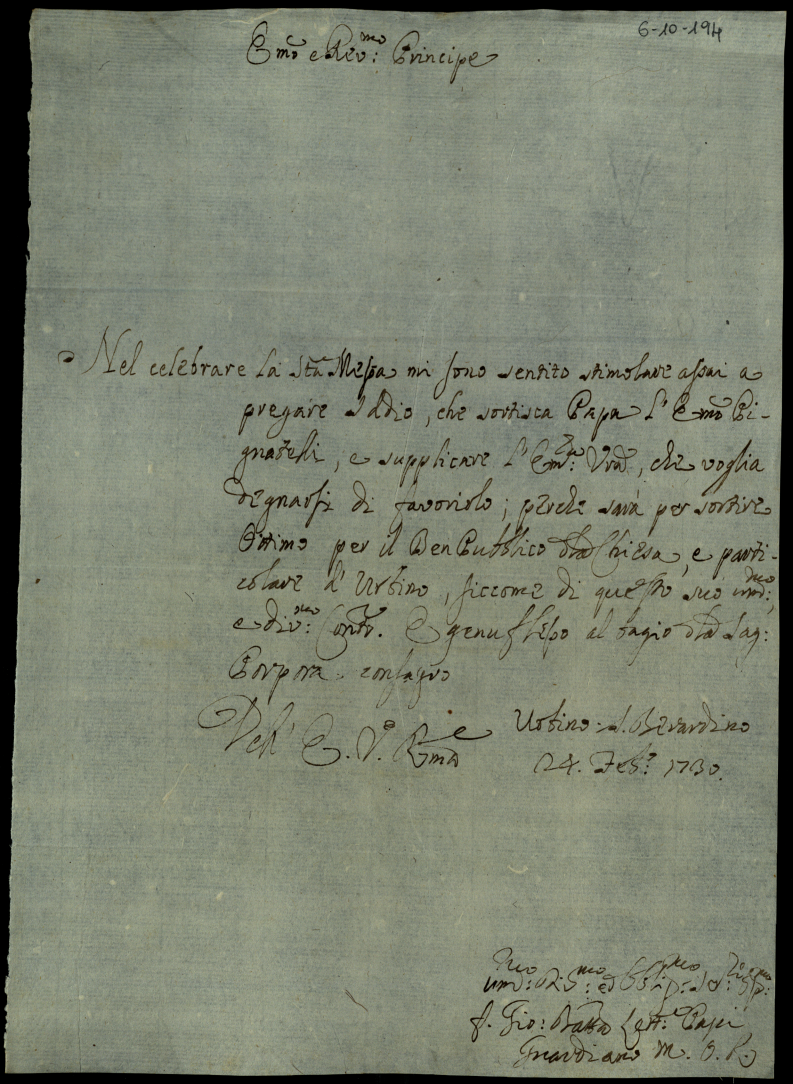 6-10-194
Emo e Rev:mo Principe
Nel celebrare la Sta Messa mi sono sentito stimolare assai a
pregare Iddio, che sortisca Papa l'Emo Pi-
gnatelli, e supplicare l'Em:za Vra, che voglia
degnarsi di favorirlo; perche sarà per sortire
Ottimo per il Ben Pubblico dlla Chiesa, e parti-
colare d'Urbino, siccome di questo suo um:mo,
e div:mo Conv:to. E genuflesso al bagio dlla Sag:
Porpora consagro
Dell' E. V. Rma
Urbino S. Berardino
24. Feb: 1730.
um:mo Dev:mo ed Obblig:mo Ser:
f. Gio: Batta
Guardiano M. O. R.